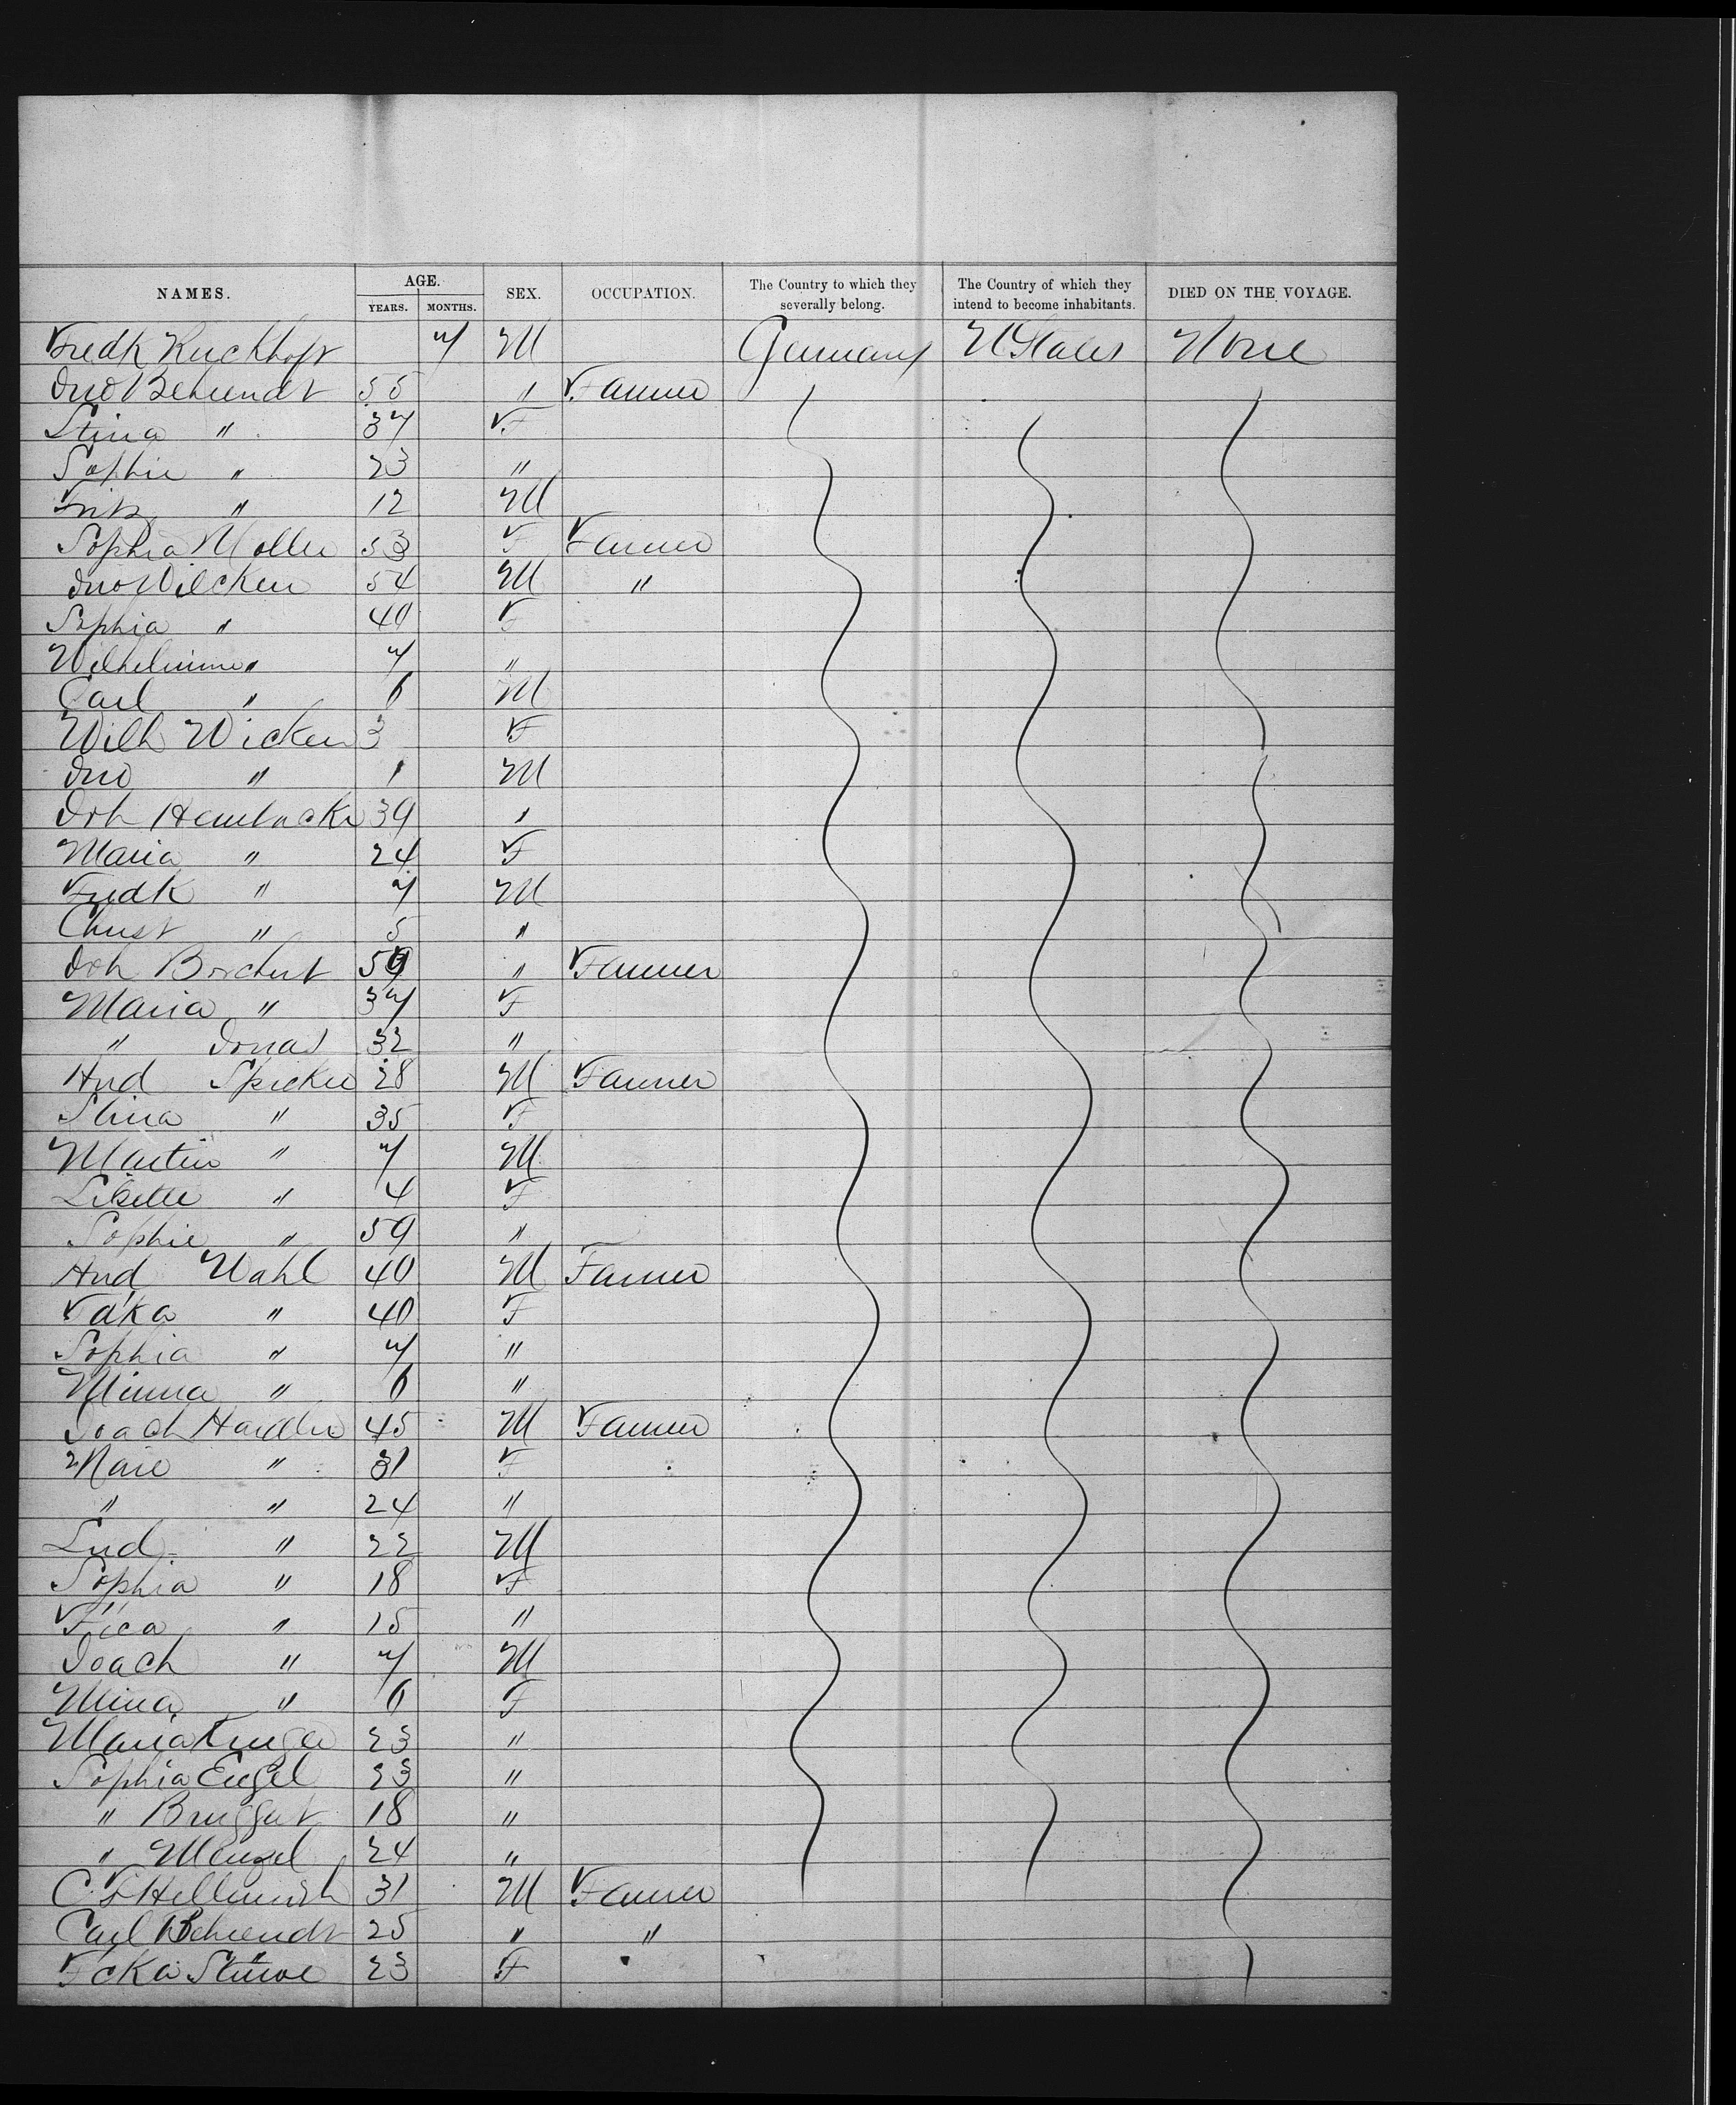 NAMES. AGE. YEARS. MONTHS. SEX. OCCUPATION. The Country to which they severally belong. The Country of which they intend to become inhabitants. DIED ON THE VOYAGE.
Fredk Kuckhoft 7 M Germany UStates None
Jno Behrendt 55 " Farmer
Stina " 37 F
Sophie " 23 "
Fritz " 12 M
Sophia Moller 53 F Farmer
Jno Wilcken 54 M "
Sophia " 40 F
Wilhelmine " 7 "
Carl " 6 M
Wilh Wicken 3 F
Jno " 1 M
Joh 39 "
Maria " 24 F
Fredk " 7 M
Christ " 5 "
Joh Borchert 59 " Farmer
Maria " 37 F
" Jonas 32 "
Hnd Spicker 28 M Farmer
Stina " 35 F
Martin " 7 M
Lisette " 4 F
Sophie " 59 "
Hnd Wahl 40 M Farmer
" 40 F
Sophia " 7 "
Minna " 6 "
Joach Hardler 45 M Farmer
Marie " 31 F
" " 24 "
Lud. " 22 M
Sophia " 18 F
Fica " 15 "
Joach " 7 M
Mina " 6 F
Maria 23 "
Sophia Engel 23 "
" Bruggert 18 "
" Menzel 24 "
C. F Hellmuth 31 M Farmer
Carl Behrendt 25 " "
Fcka Stüwe 23 F